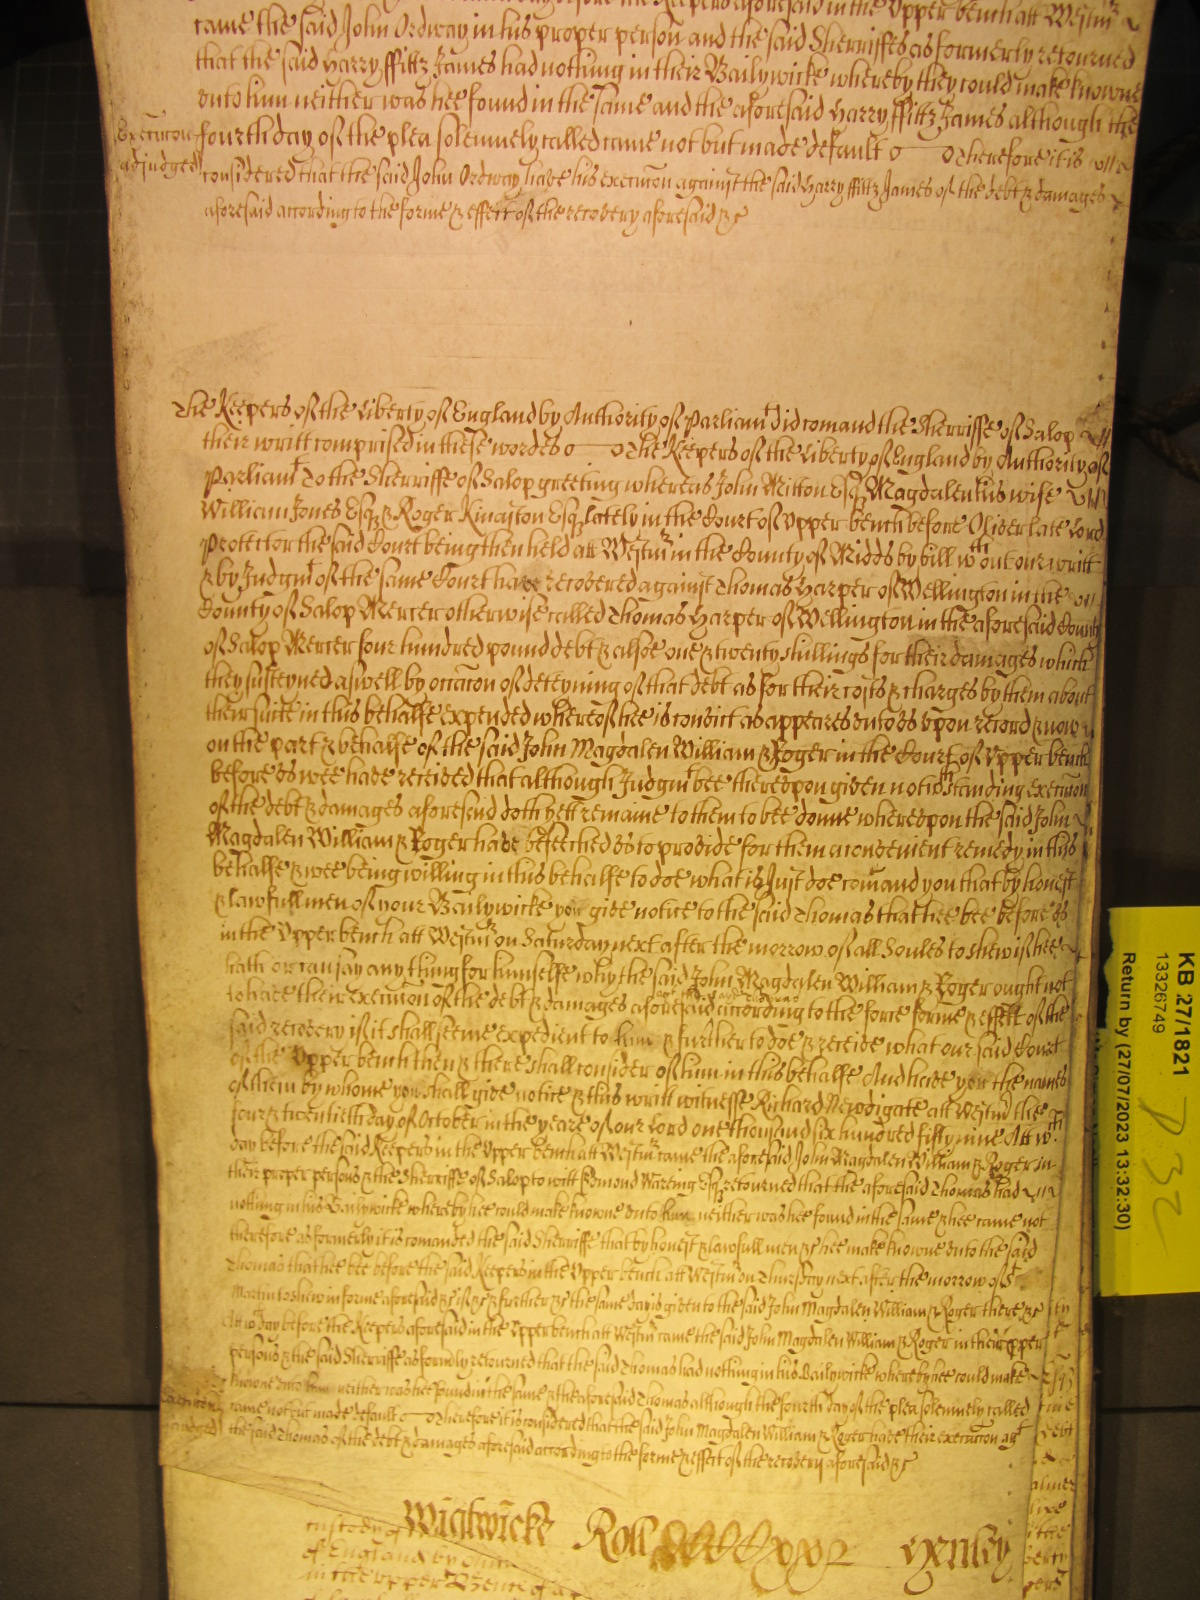 came the said John Ordway in his proper person and the said Sherriffes as formerly retourned
that the said Harry ffittz James had nothing in their Bailywicke whereby they could make knowne
unto him neither was hee found in the same and the aforesaid Harry ffittz James although the
Execucon fourth day of the plea solemnely called came not but made default Therefore it is
adjudged considered that the said John Ordway have his execucon against the said Harry ffittz James of the debt & damages
aforesaid according to the forme & effect of the recovery aforesaid &c
The Keepers of the Liberty of England by Authority of Parliamt did comand the Sherriffe of Salop
their writt comprised in these wordes The Keepers of the Liberty of England by Authority of
Parliamt To the Sherriffe of Salop greeting whereas John Mitton Esqr Magdalen his wife
William Jones Esqr & Roger Kinaston Esqr lately in the Court of Upper bench before Oliver late Lord
Protector the said Court being then held att Westmr in the County of Midds by bill wthout our writt
& by Judgmt of the same Court have recovered against Thomas Harper of Wellington in the
County of Salop Mercer otherwise called Thomas Harper of Wellington in the aforesaid County
of Salop Mercer four hundred pound debt & alsoe one & twenty shillings for their damages which
they susteyned aswell by occacon of deteyning of that debt as for their costs & charges by them about
their suite in this behalfe expended whereof hee is convict as appeares to us upon record & now
on the part & behalfe of the said John Magdalen William & Roger in the Court of Upper bench
before us wee have received that although Judgmt bee thereupon given notwthstanding execucon
of the debt & damages aforesaid doth yett remaine to them to bee donne whereupon the said John
Magdalen William & Roger have beseeched us to provide for them a convenient remedy in this
behalfe & wee being willing in this behalfe to doe what is Just doe comand you that by honest
& lawfull men of your Bailywicke you give notice to the said Thomas that hee bee before us
in the Upper bench att Westmr on Saturday next after the morrow of all Soules to shew if hee
hath or can say any thing for himselfe why the said John Magdalen William & Roger ought not
to have their execucon of the debt & damages aforesaid according to the force forme & effect of the
said recovery if it shall seeme expedient to him & further to doe & receive what our said Court
of the Upper bench then & there shall consider of him in this behalfe And have you the names
of them by whome you shall give notice & this writt witnesse Richard Newdigate att Westmr the
four & twentieth day of October in the yeare of our Lord one thousand six hundred fifty nine Att wch
day before the said Keepers in the Upper bench att Westmr came the aforesaid John Magdalen William & Roger in
their proper persons & the Sherriffe of Salop to witt Edmond Wareing Esqr retourned that the aforesaid Thomas had
nothing in his Bailywicke whereby hee could make knowne unto him neither was hee found in the same & hee came not
therefore as formerly it is comanded the said Sherriffe that by honest & lawfull men &c hee make knowne unto the said
Thomas that hee bee before the said Keepers in the Upper bench att Westmr on Thursday next after the morrow of St
Martin to shew in forme aforesaid &c if &c & further &c the same day is given to the said John Magdalen William & Roger there &c
Att wch day before the Keepers aforesaid in the Upper bench att Westmr came the said John Magdalen William & Roger in their proper
persons & the said Sherriffe as formerly retourned that the said Thomas had nothing in his Bailywicke whereby hee could make
knowne unto him neither was hee found in the same & the aforesaid Thomas although the fourth day of the plea solemnely called
Execucon came not but made default Therefore it is considered that the said John Magdalen William & Roger have their execucon agt
adjudged the said Thomas of the debt & damages aforesaid according to the forme & effect of the recovery aforesaid &c
Wightwicke Roll
custody of
of England by
in the upper Bench
KB 27/1821
13326749
Return by (27/07/2023 13:32:30)